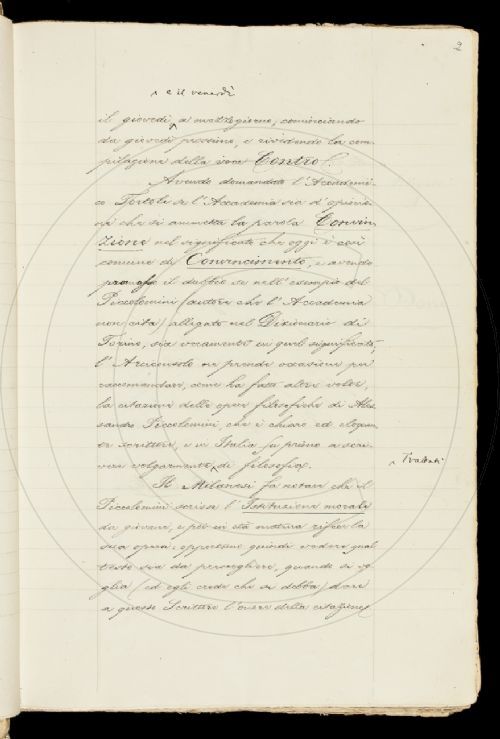 2
^ e il venerdì
il giovedì ^ a mezzogiorno, cominciando
da giovedì prossimo, e rividendo la com-
pilazione della voce Contro.
Avendo domandato l'Accademi-
co Tortoli se l'Accademia sia d'opinio-
ne che si ammetta la parola Convin-
zione nel significato che oggi è così
comune di Convincimento, e avendo
promosso il dubbio se nell'esempio del
Piccolomini (autore che l'Accademia
non cita) allegato nel Dizionario di
Torino, sia veramente in quel significato,
l'Arciconsolo ne prende occasione per
raccomandare, come ha fatto altre volte,
la citazione delle opere filosofiche di Ales-
sandro Piccolomini, che è chiaro ed elegan-
te scrittore, e in Italia fu primo a scri-
vere volgarmente ^ di filosofia.
^ Trattati
Il Milanesi fa notare che il
Piccolomini scrisse l'Istituzione morale
da giovane, e poi in età matura rifece la
sua opera: opportuno quindi vedere qual
testo sia da prescegliere, quando si vo-
glia (ed egli crede che si debba) dare
a questo Scrittore l'onore della citazione.